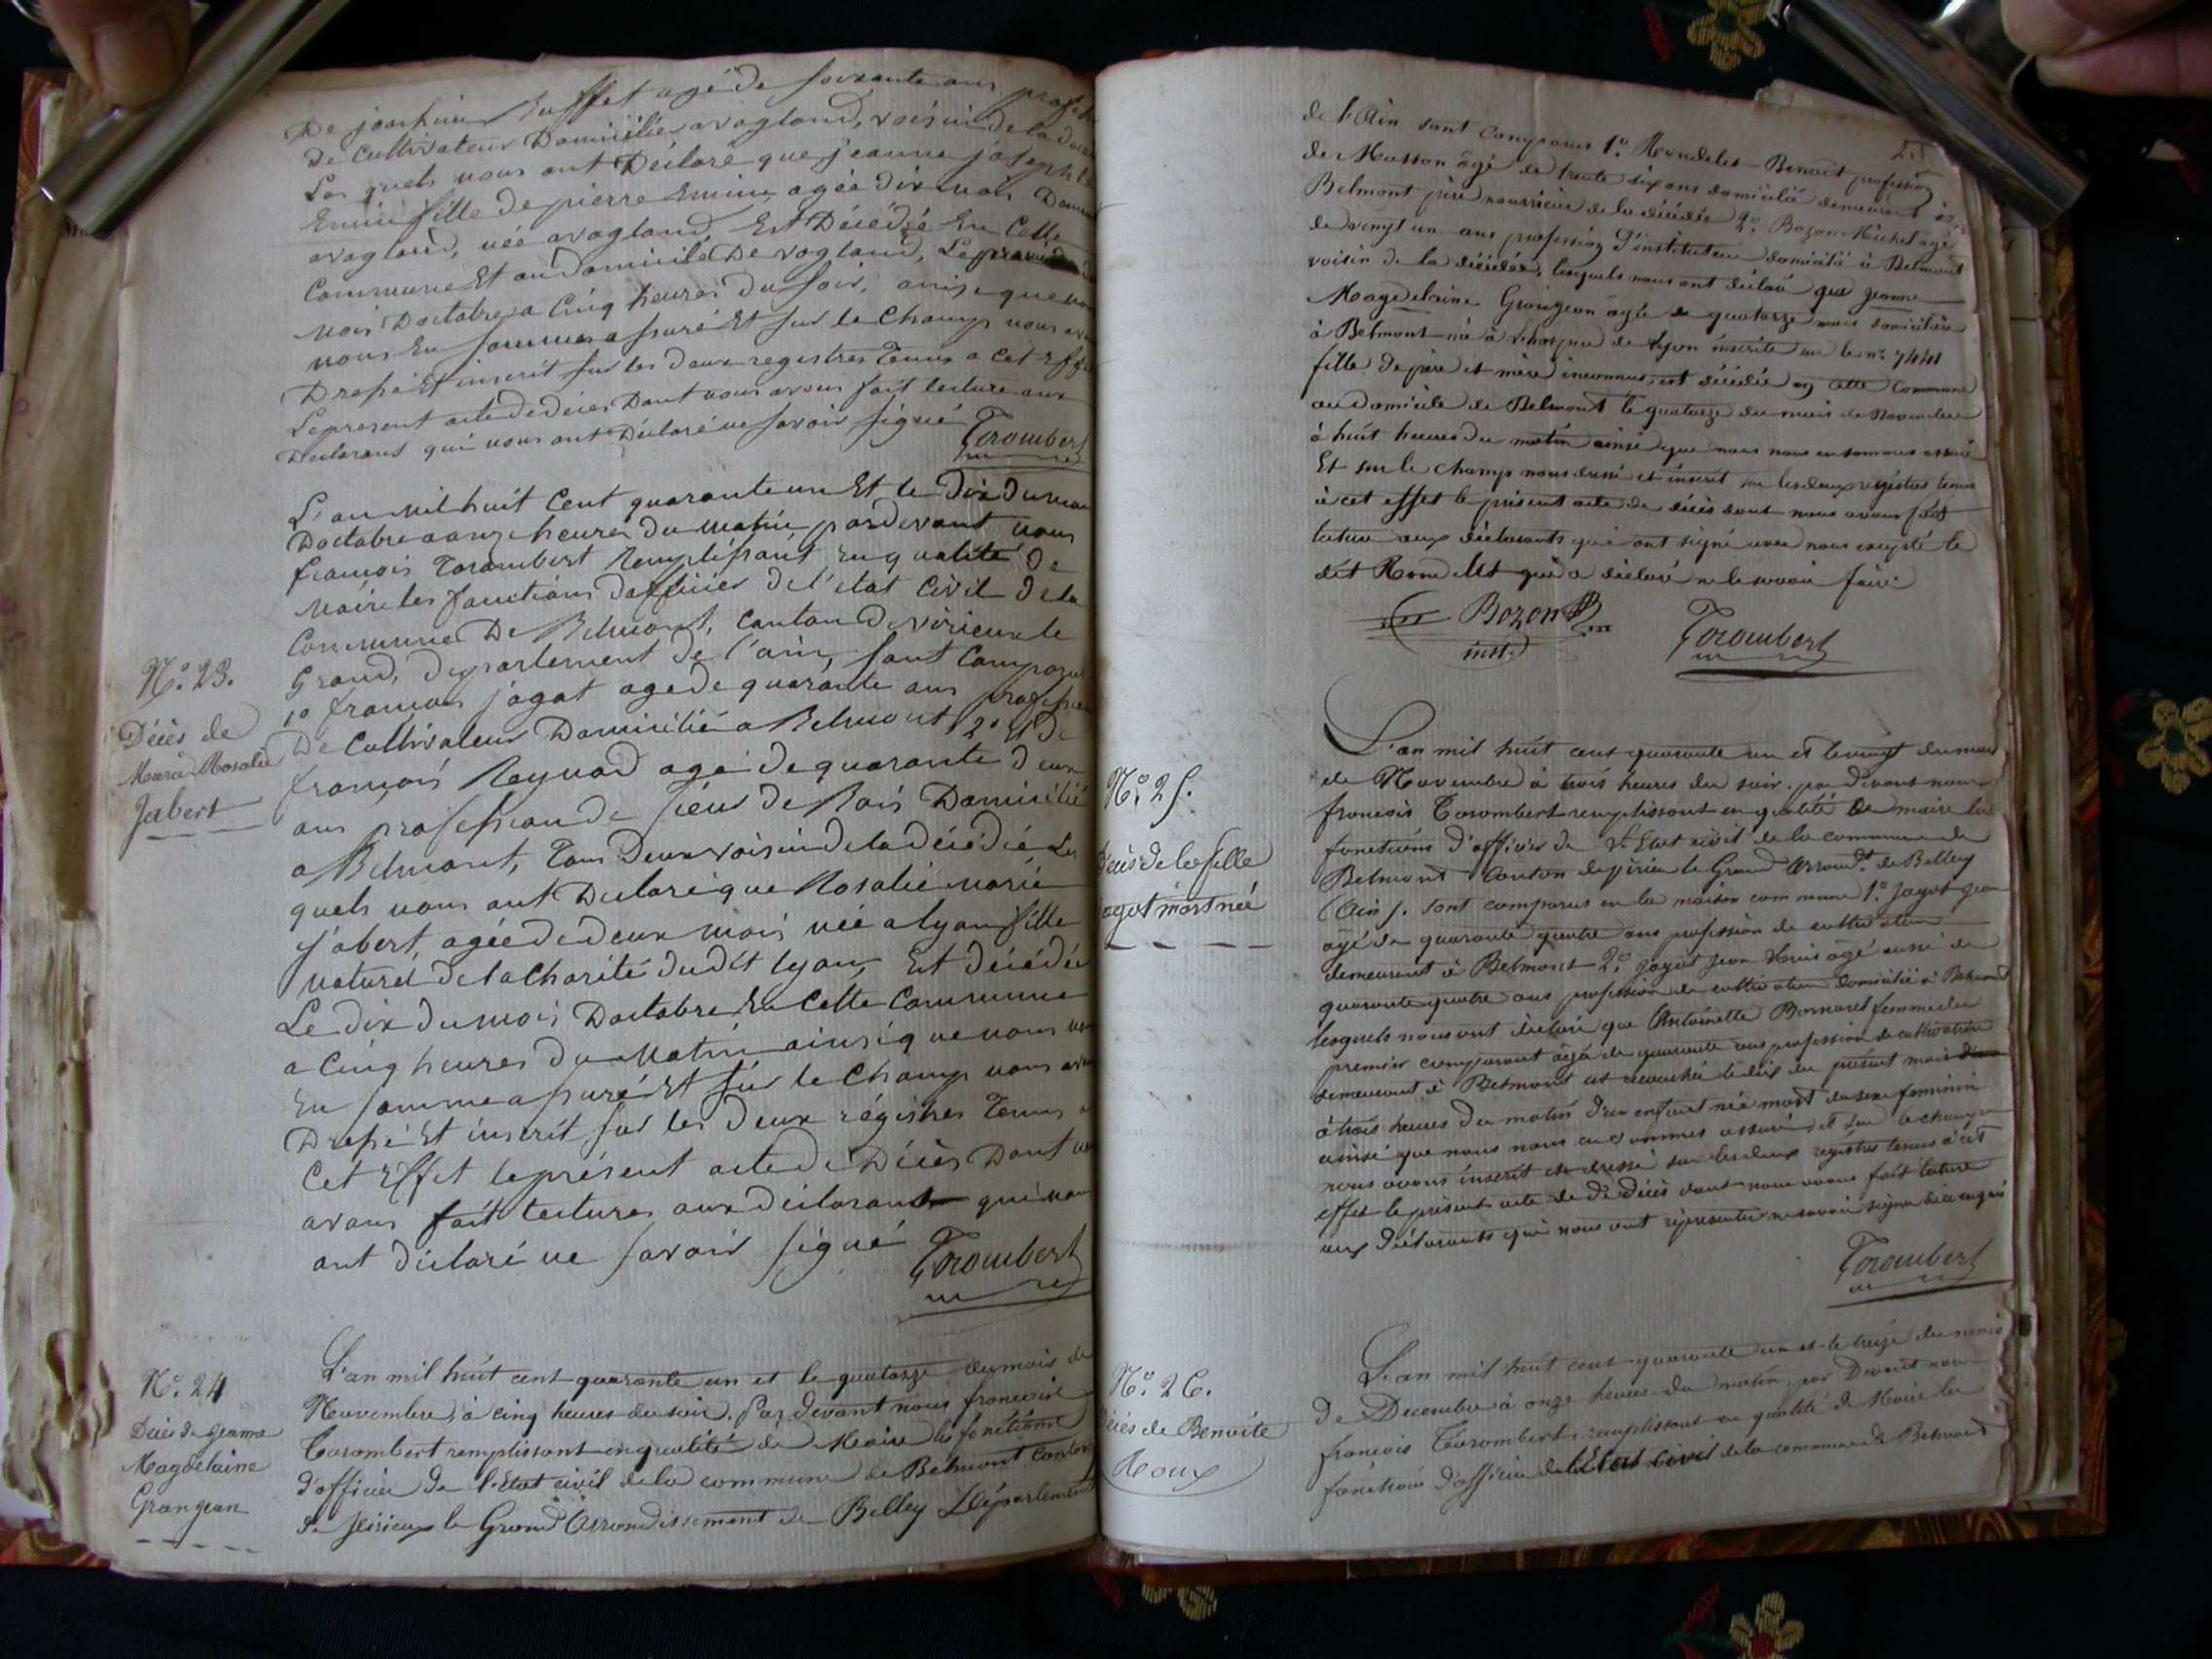 De joachim Suffet agé de soixante ans
De Cultivateur Domicilié a vogland, voisin de la
Les quels nous ont Déclaré que jeanne josephte
Emin fille de pierre Emin, agée dix mois
avogland, née avogland, Est Décédé En Cette
Commune Et au domicile De vogland, Le
mois Doctobre a Cinq heures Du soir, ainsi que nous
nous En sommes assuré Et sur le Champ nous avons
Dressé Et inscrit sur les deux registres Tenus a Cet Effet
Le present acte De deces Dont nous avons fait lecture aux
Declarans qui nous ont Déclaré ne savoir signé
Torombert
L'an mil huit Cent quarante un Et le Dix Du mois
Doctobre a onze heures Du matin pardevant nous
francois Torombert Remplissant En qualité De
maire les fonctions Dofficier de l'etat Civil De la
Commune De Belmont, Canton De virieux le
Grand, Departement De l'ain, sont Comparu
1º francois jagot age de quarante ans profession
De Cultivateur Domicilié a Belmont 2º Et De
francois Reynad agé De quarante Deux
ans profession De sieur De Bois Domicilié
a Belmont, Tous Deux voisin de la Décédé Les
quels nous ont Declaré que Rosalie marie
jabert, agée de deux mois née a lyon fille
naturel De la Charité Dudit lyon, Est décédée
Le dix du mois Doctobre En Cette Commune
a Cinq heures Du matin ainsi que nous nous
En somme assuré Et sur le Champ nous avons
Dressé Et inscrit sur les Deux régistres Tenus a
Cet Effet le présent acte De Décès Dont nous
avons fait lecture aux declarant qui nous
ont déclaré ne savoir signé
Torombert
Nº. 23.
Décès de
Marie Rosalie
Jabert
Nº. 24
Décès de Jeanne
Magdelaine
Granjean
L'an mil huit cent quarante un et le quatorze du mois de
Novembre, à cinq heures du soir. Par devant nous francois
Torombert remplissant en qualité de Maire les fonctions
d'officier de l'Etat civil de la commune de Belmont canton
de Virieux le Grand Arrondissement de Belley Département
de l'Ain sont comparus 1º. Rondelet Benoit profession
de Masson âgé de trente six ans domicilié demeurant à
Belmont père nourricier de la décédée 2º. Bozon Michel agé
de vingt un ans profession d'instituteur domicilié à Belmont
voisin de la décédée, lesquels nous ont déclaré que Jeanne
Magdelaine Granjean agée de quatorze mois domiciliée
à Belmont née à l'hospice de Lyon inscrite sur le nº.
fille de père et mère inconnus, est décédée en cette Commune
au domicile de Belmont le quatorze du mois de Novembre
à huit heures du matin ainsi que nous nous en sommes assuré
Et sur le champ nous dressé et inscrit sur les deux registres tenus
à cet effet le présent acte de décès dont nous avons fait
lecture aux déclarants qui ont signé avec nous excepté le
dit Rondelet qui a déclaré ne le savoir faire
Bozon
inst.
Torombert
Nº. 25.
Décès de la fille
Jagot mort née
L'an mil huit cent quarante un et le vingt du mois
de Novembre à trois heures du soir, par devant nous
francois Torombert remplissant en qualité de maire les
fonctions d'officier de l'Etat civil de la commune de
Belmont Canton de Virieu le Grand Arrondt. de Belley
(Ain). Sont comparus en la maison commune 1º. Jagot Jean
âgé de quarante quatre ans profession de cultivateur
demeurant à Belmont 2º. Jagot Jean Louis âgé aussi de
quarante quatre ans profession de cultivateur domicilié à Belmont
lesquels nous ont déclaré que Antoinette Bornard femme du
premier comparant âgée de quarante ans profession de cultivatrice
demeurant à Belmont est accouchée le dix du présent mois
à trois heures du matin d'un enfant née mort du sexe feminin
ainsi que nous nous en sommes assuré et sur le champ
nous avons inscrit et dressé sur les deux régistres tenus à cet
effet le présent acte de décès dont nous avons fait lecture
aux déclarants qui nous ont représenter ne savoir signer de ce requis
Torombert
Nº. 26.
Décès de Benoite
Roux
L'an mil huit cent quarante un et le treize du mois
De Decembre à onze heures du matin, par Devant nous
francois Torombert remplissant en qualité de Maire les
fonctions d'officier de l'Etat civil de la commune de Belmont